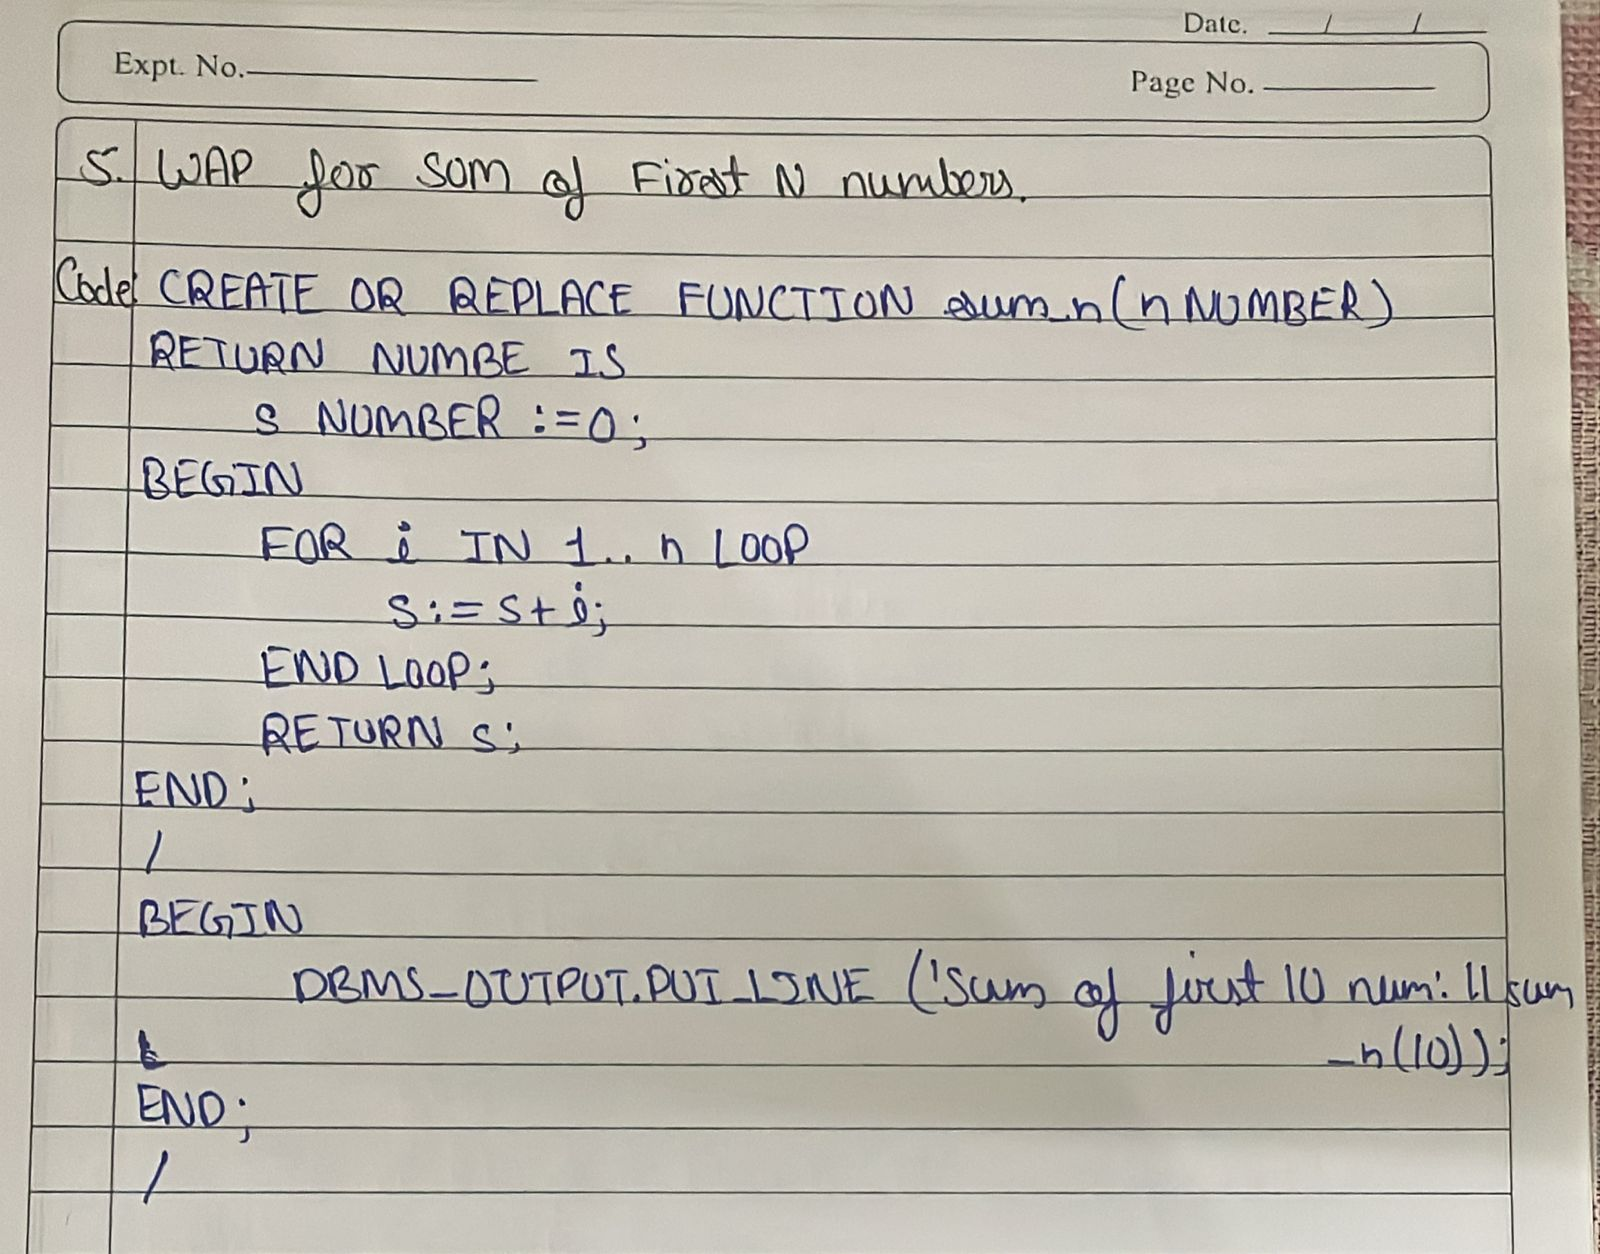 Date. / /
Expt. No.
Page No.
5. WAP for SUM of First N numbers.
Code: CREATE OR REPLACE FUNCTION sum_n(n NUMBER)
RETURN NUMBE IS
S NUMBER :=0;
BEGIN
FOR i IN 1..n LOOP
S:=S+i;
END LOOP;
RETURN S;
END;
/
BEGIN
DBMS_OUTPUT.PUT_LINE ('Sum of first 10 num: || sum
_n(10));
END;
/